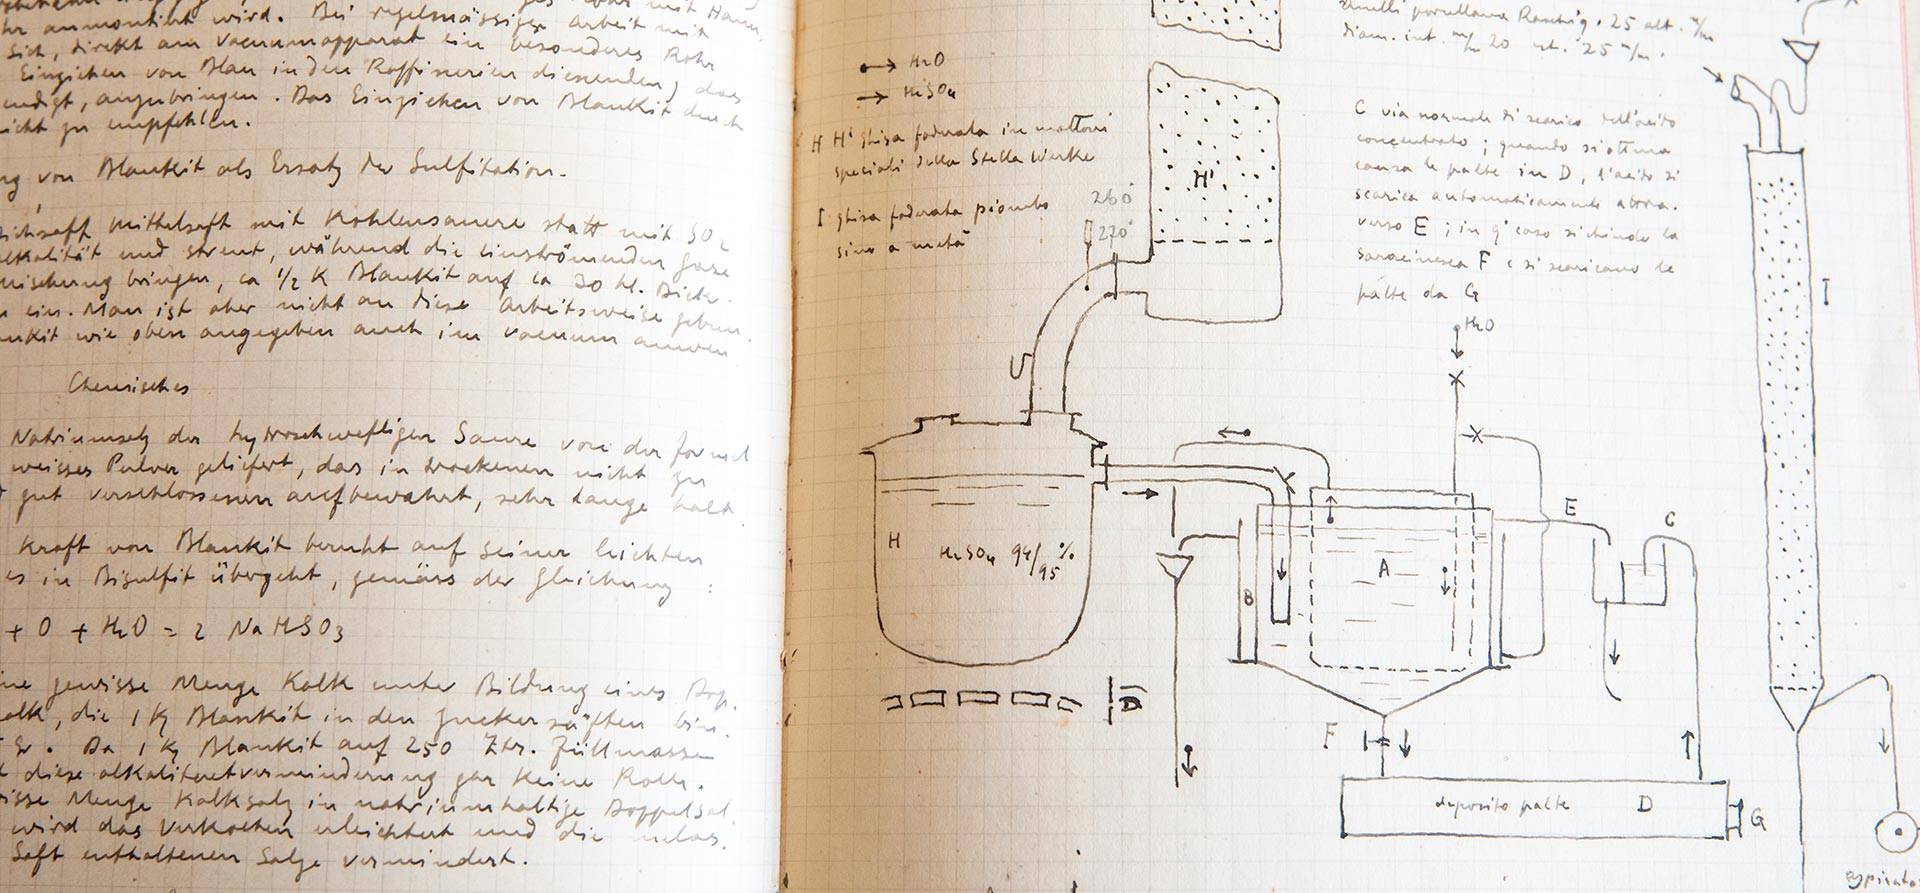 ihr anmontiert wird. Bei regelmässiger Arbeit mit
sich, direkt am Vacuumapparat ein besonderes Rohr
Einziehen von Blau in den Raffinerien dienenden) das
endigt, anzubringen. Das Einziehen von Blankit durch
nicht zu empfehlen.
ng von Blankit als Ersatz der Sulfitation.
Mittelsaft mit Kohlensäure statt mit SO2
alkalität und strent, während die einströmenden Gase
mischung bringen, ca 1/2 K Blankit auf ca 30 hl. Dick-
ein. Man ist aber nicht an diese Arbeitsweise gebun
ankit wie oben angegeben auch im Vacuum anwen
Chemisches
Natriumsalz der hydroschwefligen Saure von der Formel
weisses Pulver geliefert, das in trockenem nicht zu
gut verschlossenem aufbewahrt, sehr lange halt.
Kraft von Blankit beruht auf seiner leichten
es in Bisulfit übergeht, gemäss der Gleichung :
+ O + H2O = 2 NaHSO3
ine gewisse Menge Kalk unter Bildung eines Dop.
alk, die 1 Kg Blankit in den Zuckersäften bin.
Gr. Da 1 Kg Blankit auf 250 Ztr. Füllmassen
diese alkalitaetverminderung gar keine Rolle.
isse Menge Kalksalz in natriumhaltige Doppelsal.
wird das Verkochen erleichtert und die melas.
Saft enthaltenen Salze vermindert.
anelli porcellana Raschig. 25 alt. m/m
diam. int. m/m 20 est. 25 m/m.
H2O
H2SO4
H H' ghisa foderata in mattoni
speciali della Stella Werke
I ghisa foderata piombo
sino a metà
260°
270°
H'
C via normale di scarico dell'acido
concentrato; quando si ottura
causa le palte in D, l'acido si
scarica automaticamente allora
verso E; in q' caso si chiude la
saracinesca F e si scaricano le
palte da G
H2O
I
H
H2SO4 94/95 %
A
B
E
C
D
F
deposito palte D
G